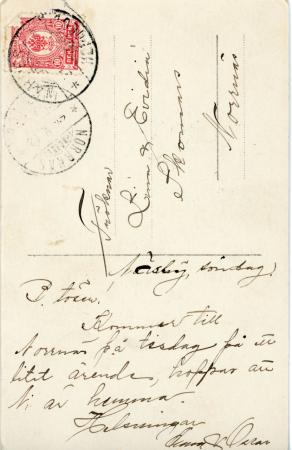 Fröknar
Lina & Evidia
Skomars
Norrnäs
Näsby, söndag,
P. tösen!
Kommer till
Norrnäs på tisdag på ett
litet ärende, hoppas att
Ni är hemma.
Helsningar
Oscar